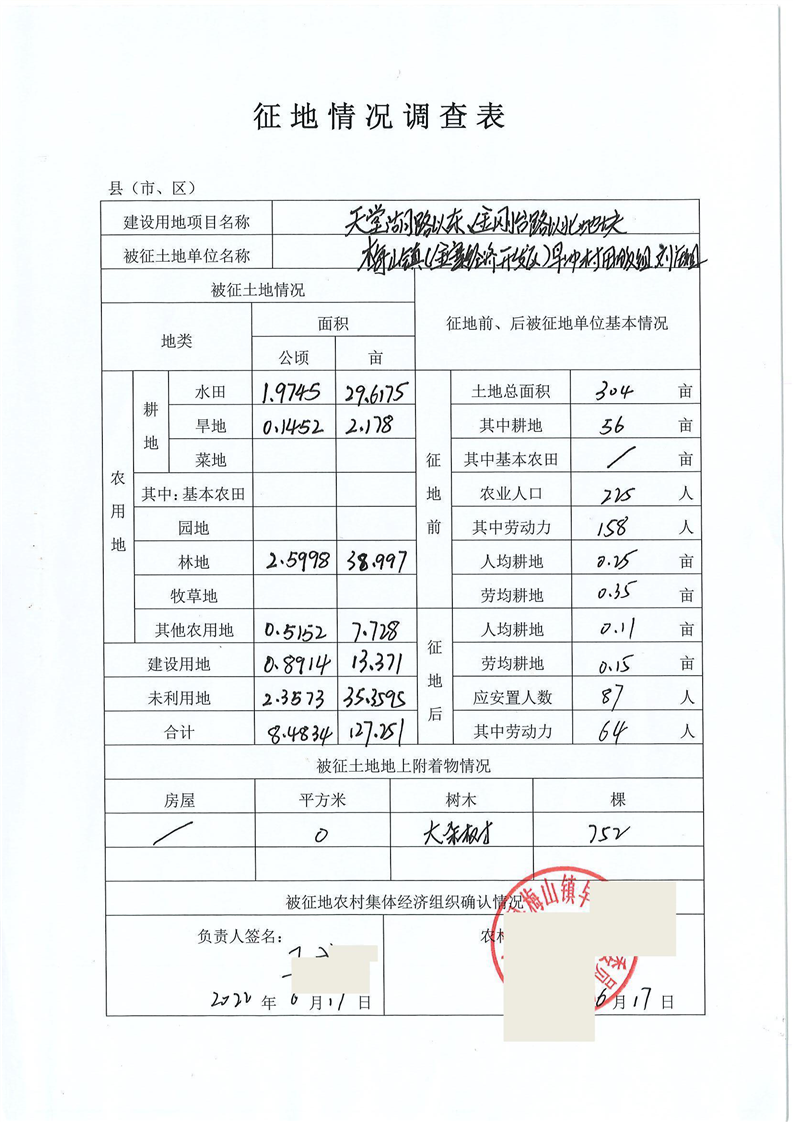 征地情况调查表
县（市、区）
建设用地项目名称 天堂湖路以东、金刚台路以北地块
被征土地单位名称 梅山镇（金寨经济开发区）
被征土地情况 征地前、后被征地单位基本情况
地类 面积
公顷 亩
农用地 耕地 水田 1.9745 29.6175
旱地 0.1452 2.178
菜地
其中：基本农田
园地
林地 2.5998 38.997
牧草地
其他农用地 0.5152 7.728
建设用地 0.8914 13.371
未利用地 2.3573 35.3595
合计 8.4834 127.251
征地前 土地总面积 304 亩
其中耕地 56 亩
其中基本农田 / 亩
农业人口 225 人
其中劳动力 158 人
人均耕地 0.25 亩
劳均耕地 0.35 亩
征地后 人均耕地 0.11 亩
劳均耕地 0.15 亩
应安置人数 87 人
其中劳动力 64 人
被征土地地上附着物情况
房屋 平方米 树木 棵
/ 0 大杂树 752
被征地农村集体经济组织确认情况
负责人签名： 农村
2022 年 6 月 17 日 6 月 17 日
梅山镇